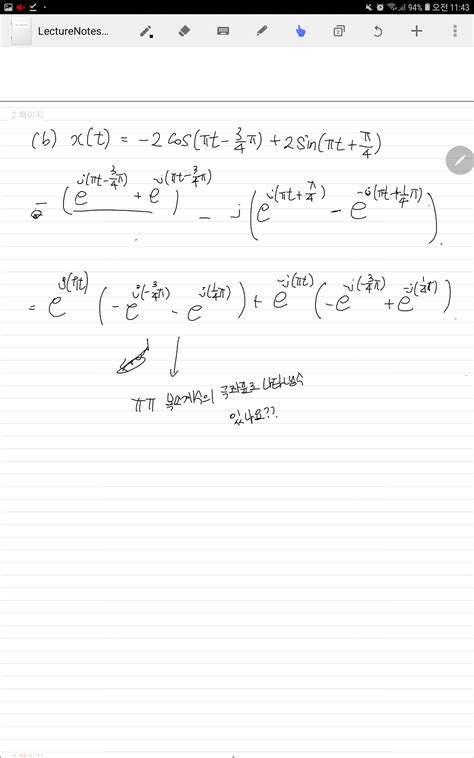 94% 오전 11:43
LectureNotes...
2 페이지
(b) x(t) = -2 cos(πt - 3/4 π) + 2 sin(πt + π/4)
= (e^{j(πt - 3/4 π)} + e^{-j(πt - 3/4 π)}) - j(e^{j(πt + π/4)} - e^{-j(πt + 1/4 π)})
= e^{j(πt)} (-e^{j(-3/4 π)} - e^{j(1/4 π)}) + e^{-j(πt)} (-e^{-j(-3/4 π)} + e^{-j(1/4 π)})
ππ 복소계수의 극좌표로 나타낼수
있나요??